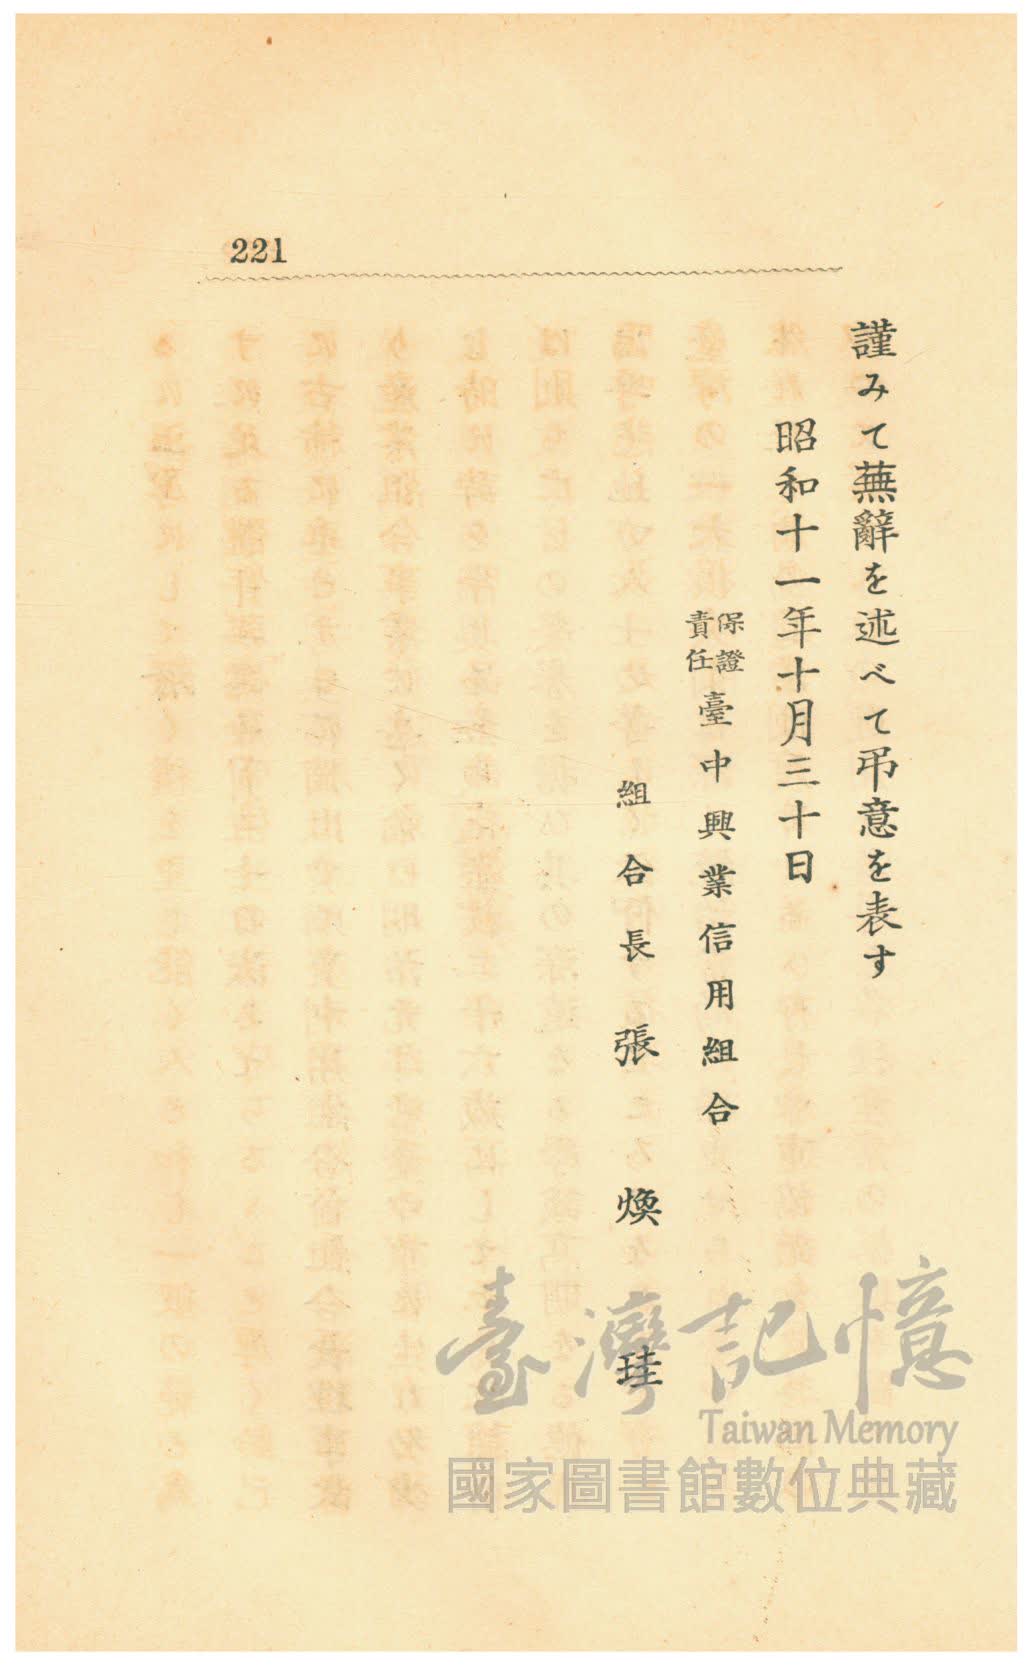 221
謹みて蕪辭を述べて弔意を表す
昭和十一年十月三十日
保證責任臺中興業信用組合
組合長張煥珪
臺灣記憶
Taiwan Memory
國家圖書館數位典藏